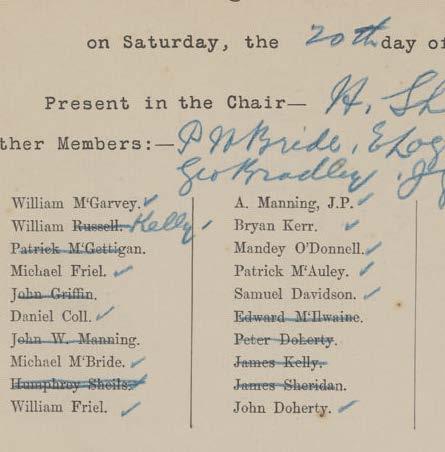 on Saturday, the 20th day of
Present in the Chair— H. Sh
ther Members:— P McBride, E Log
Geo Bradley,
William M'Garvey.
William Russell. Kelly,
Patrick M'Gettigan.
Michael Friel.
John Griffin.
Daniel Coll.
John W. Manning.
Michael M'Bride.
Humphrey Sheils.
William Friel.
A. Manning, J.P.
Bryan Kerr.
Mandey O'Donnell.
Patrick M'Auley.
Samuel Davidson.
Edward M'Ilwaine.
Peter Doherty.
James Kelly.
James Sheridan.
John Doherty.